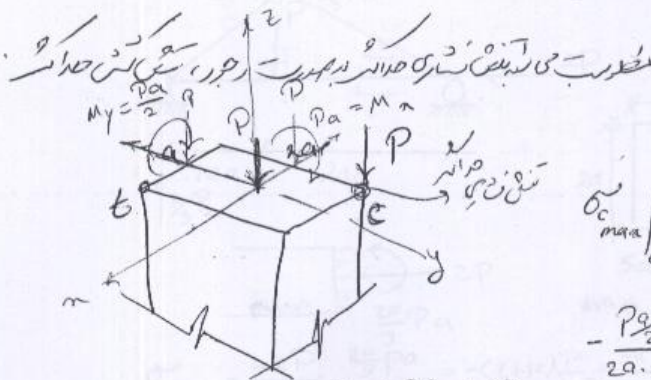 مطلوبست می باشد تنش فشاری حداکثر در صورت وجود، تنش کششی حداکثر.
z
My = Pa/2
P
P
P
Pa = Mx
a
2a
P
تنش فشاری حداکثر
t
c
σc max
x
y
- Pa/2
2a.